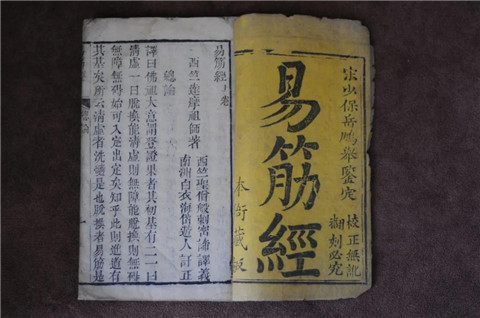 宋少保岳鵬舉鑒定
易筋經
校正無訛
翻刻必究
本衙藏板
易筋經 卷
西竺達摩祖師著
西竺聖僧般剌密諦譯義
南洲白衣海岱遊人訂正
總論
譯曰佛祖大意謂登證果者其初基有二一曰
清虛一曰脫換能清虛則無障能脫換則無碍
無障無碍始可入定出定矣知乎此則進道有
其基矣所云清虛者洗髓是也脫換者易筋是